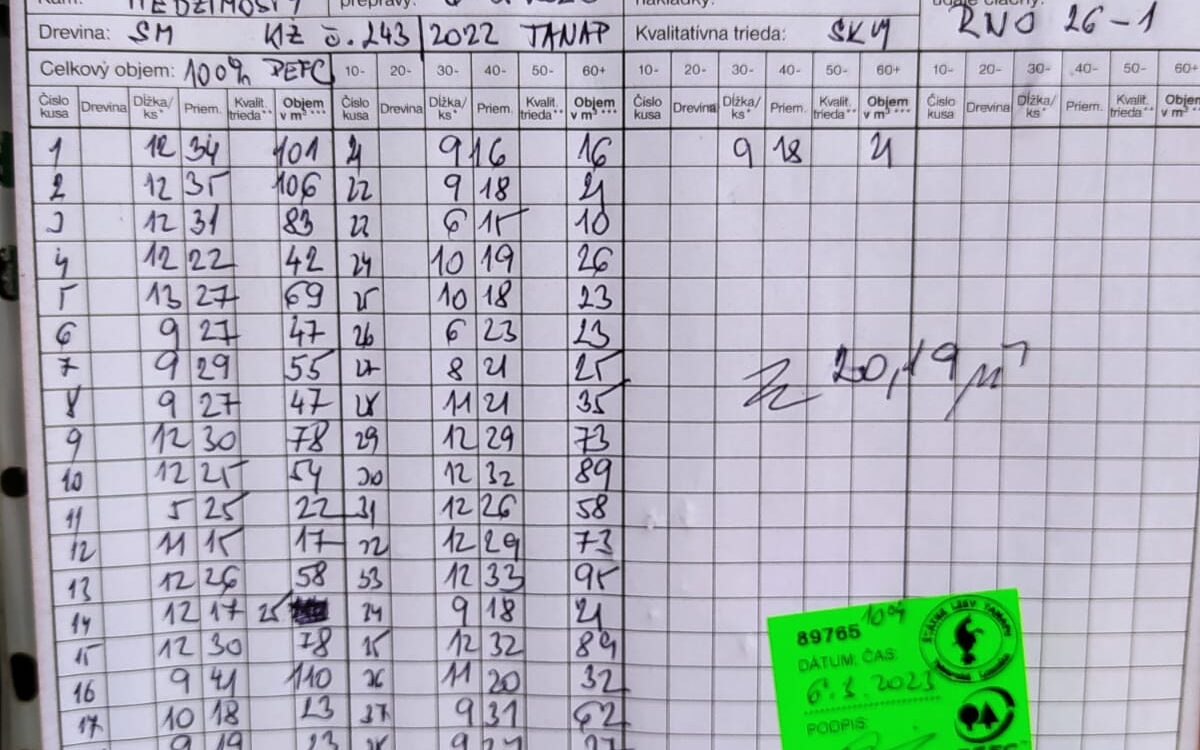 prepravy:
nakládky:
Drevina: SM KlŽ č. 243/2022 TANAP Kvalitatívna trieda: SKM RNO 26-1
Celkový objem: 100% PEFC 10- 20- 30- 40- 50- 60+ 10- 20- 30- 40- 50- 60+ 10- 20- 30- 40- 50- 60+
Číslo kusa Drevina Dĺžka/ks* Priem. Kvalit. trieda** Objem v m³*** Číslo kusa Drevina Dĺžka/ks* Priem. Kvalit. trieda** Objem v m³*** Číslo kusa Drevina Dĺžka/ks* Priem. Kvalit. trieda** Objem v m³*** Číslo kusa Drevina Dĺžka/ks* Priem. Kvalit. trieda** Objem v m³***
1 12 34 101 21 9 16 16 9 18 21
2 12 35 106 22 9 18 21
3 12 31 83 22 6 15 10
4 12 22 42 24 10 19 26
5 13 27 69 25 10 18 23
6 9 27 47 26 6 23 23
7 9 29 55 27 8 21 25
8 9 27 47 28 11 21 35
9 12 30 78 29 12 29 73
10 12 25 54 30 12 32 89
11 5 25 22 31 12 26 58
12 11 15 17 32 12 29 73
13 12 26 58 33 12 33 95
14 12 17 25 34 9 18 21
15 12 30 78 35 12 32 89
16 9 41 110 36 11 20 32
17 10 18 23 37 9 31 62
9 19 23 38 9
20,19 m³
89765
DÁTUM, ČAS:
6.3.2023
PODPIS: